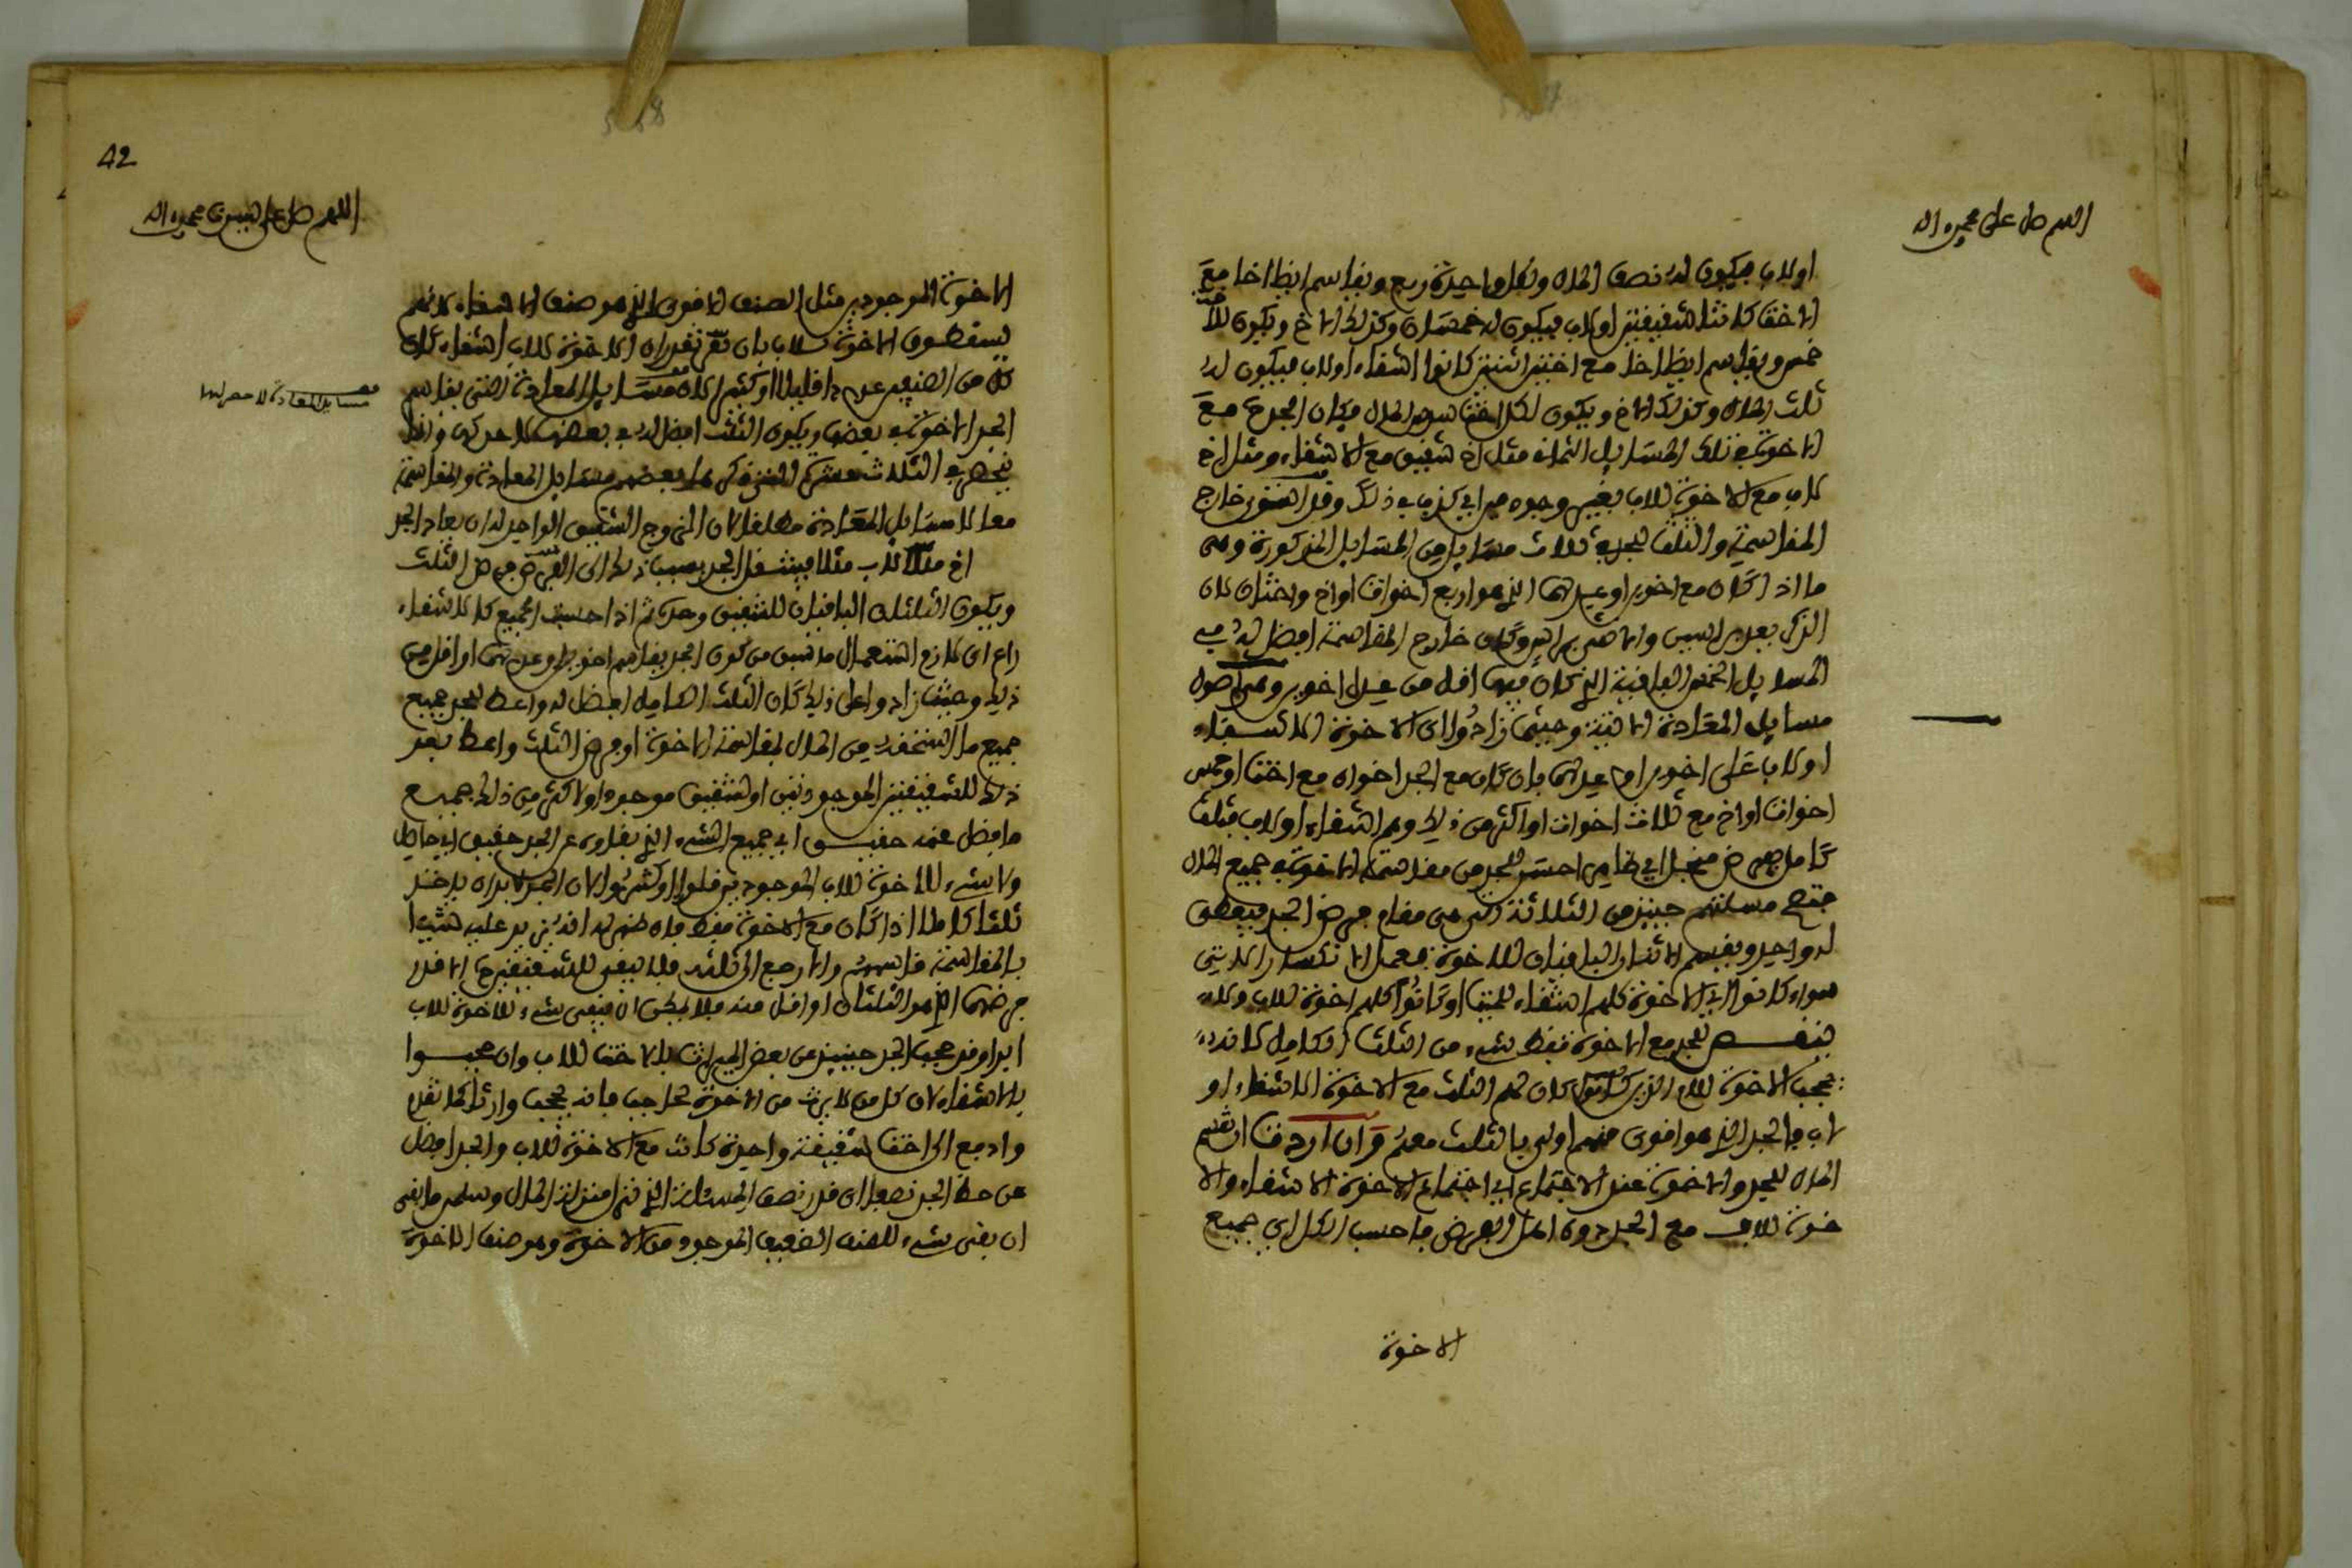 اللهم صل على محمد واله
او لاب فيكون له نصف المال ولكل واحدة ربع ويقاسم ايضا اخا مع
الاخت كانتا شقيقتين او لاب فيكون له خمسان وكذلك الاخ ويكون للاخت
خمس ويقاسم ايضا اخا مع اختين اثنتين كانوا اشقاء او لاب فيكون له
ثلث المال وكذلك الاخ ويكون لكل اخت سدس المال فكان الجد مع
الاخوة في تلك المسايل الثمان مثل اخ شقيق مع الاشقاء ومثل اخ
لاب مع الاخوة للاب بغير وجوه ميراثي كذب في ذلك وقد استوى خارج
المقاسمة والثلث للجد في ثلاث مسايل من المسايل المذكورة وهي
ما اذا كان مع اخوين او عدلهما الذي هو اربع اخوات او اخ واختان لان
الذكر يعدل انثيين وكان خارج المقاسمة افضل له في
المسايل الخمس الباقية التي كان فيها اقل من عدل اخوين وهي اصول
مسايل المعادة الاتية وحيثما زادوا اي الاخوة الاشقاء
او لاب على اخوين او عدلهما بان كان مع الجد اخوان مع اخت او خمس
اخوات او اخ مع ثلاث اخوات او اكثر من ذلك وهم اشقاء او لاب فثلث
كامل فرض منجل اي ظاهر احسن للجد من مقاسمة الاخوة في جميع المال
فتصح مسئلتهم حينئذ من الثلاثة التي هي مقام فرض الجد فيعطى
له واحد ويقسم الاثنان الباقيان للاخوة فيعمل الانكسار الاتي
سواء كانوا اي الاخوة كلهم اشقاء للميت او كانوا كلهم اخوة للاب ولا
ينقص للجد مع الاخوة فقط شيء من الثلث الكامل لانه
يحجب الاخوة للام الذين كان لهم الثلث مع الاخوة الاشقاء او
لاب فالجد الذي هو اقوى منهم اولى بالثلث معهم وان اردت ان تقسم
المال للجد والاخوة عند الاجتماع اي اجتماع الاخوة الاشقاء والا
خوة للاب مع الجد دون اهل الفرض فاحسب الكل اي جميع
الاخوة
42
اللهم صل على سيدنا محمد واله
الاخوة الموجودين مثل الصنف الاقوى الذي هو صنف الاشقاء لانهم
يسقطون الاخوة للاب بان تقدر ان الاخوة للاب اشقاء كان
كل من الصنفين عددا قليلا او كثيرا لان مسايل المعادة التي يقاسم
مسايل المعادة لا حصر لها
الجد الاخوة في بعضها ويكون الثلث افضل له في بعضها
تنحصر في الثلاث عشرة التي ذكرها بعضهم مسايل المعادة والمقاسمة
معا لا مسايل المعادة مطلقا لان الزوج الشقيق الواحد له ان يعاد الجد
اخ للاب مثلا فينتقل الجد بسبب ذلك الى الفرض فرض الثلث
ويكون الثلثان الباقيان للشقيق وحده ثم اذا حسبت الجميع كالاشقاء
راع اي لازم استعمال ما سبق من كون الجد يقاسم اخوين او عدلهما او اقل من
ذلك وحيث زادوا على ذلك كان الثلث الكامل افضل له واعط للجد جميع
جميع ما استحقه من المال بمقاسمة الاخوة او فرض الثلث واعط بعد
ذلك للشقيقتين الموجودتين او لشقيق موجود او لاكثر من ذلك جميع
ما فضل عنه حقيق اي جميع الشيء الذي بقي عن الجد حقيق اي حاصل
ولا شيء للاخوة للاب الموجودين قلوا او كثروا لان الجد لا بد ان ياخذ
ثلثا كاملا اذا كان مع الاخوة فقط فان ظهر له انه يزيد عليه شيئا
بالمقاسمة قاسمهم والا رجع الى ثلثه فلا يبقى للشقيقتين الا قدر
فرضهما الذي هو الثلثان او اقل منه فلا يمكن ان يبقى شيء للاخوة للاب
ابدا وقد حجب الجد حينئذ عن بعض الميراث بالاخت للاب وان حجبوا
بالاشقاء لان كل من لا يرث من الاخوة بحاجب فانه يحجب وارثا كما تقدم
وادفع الى اخت شقيقة واحدة كانت مع الاخوة للاب والجد افضل
عن حظ الجد نصفا اي قدر نصف المسئلة التي تنزل منزلة المال وسلم ما بقي
ان بقي شيء للصنف الضعيف الموجود من الاخوة وهو صنف الاخوة